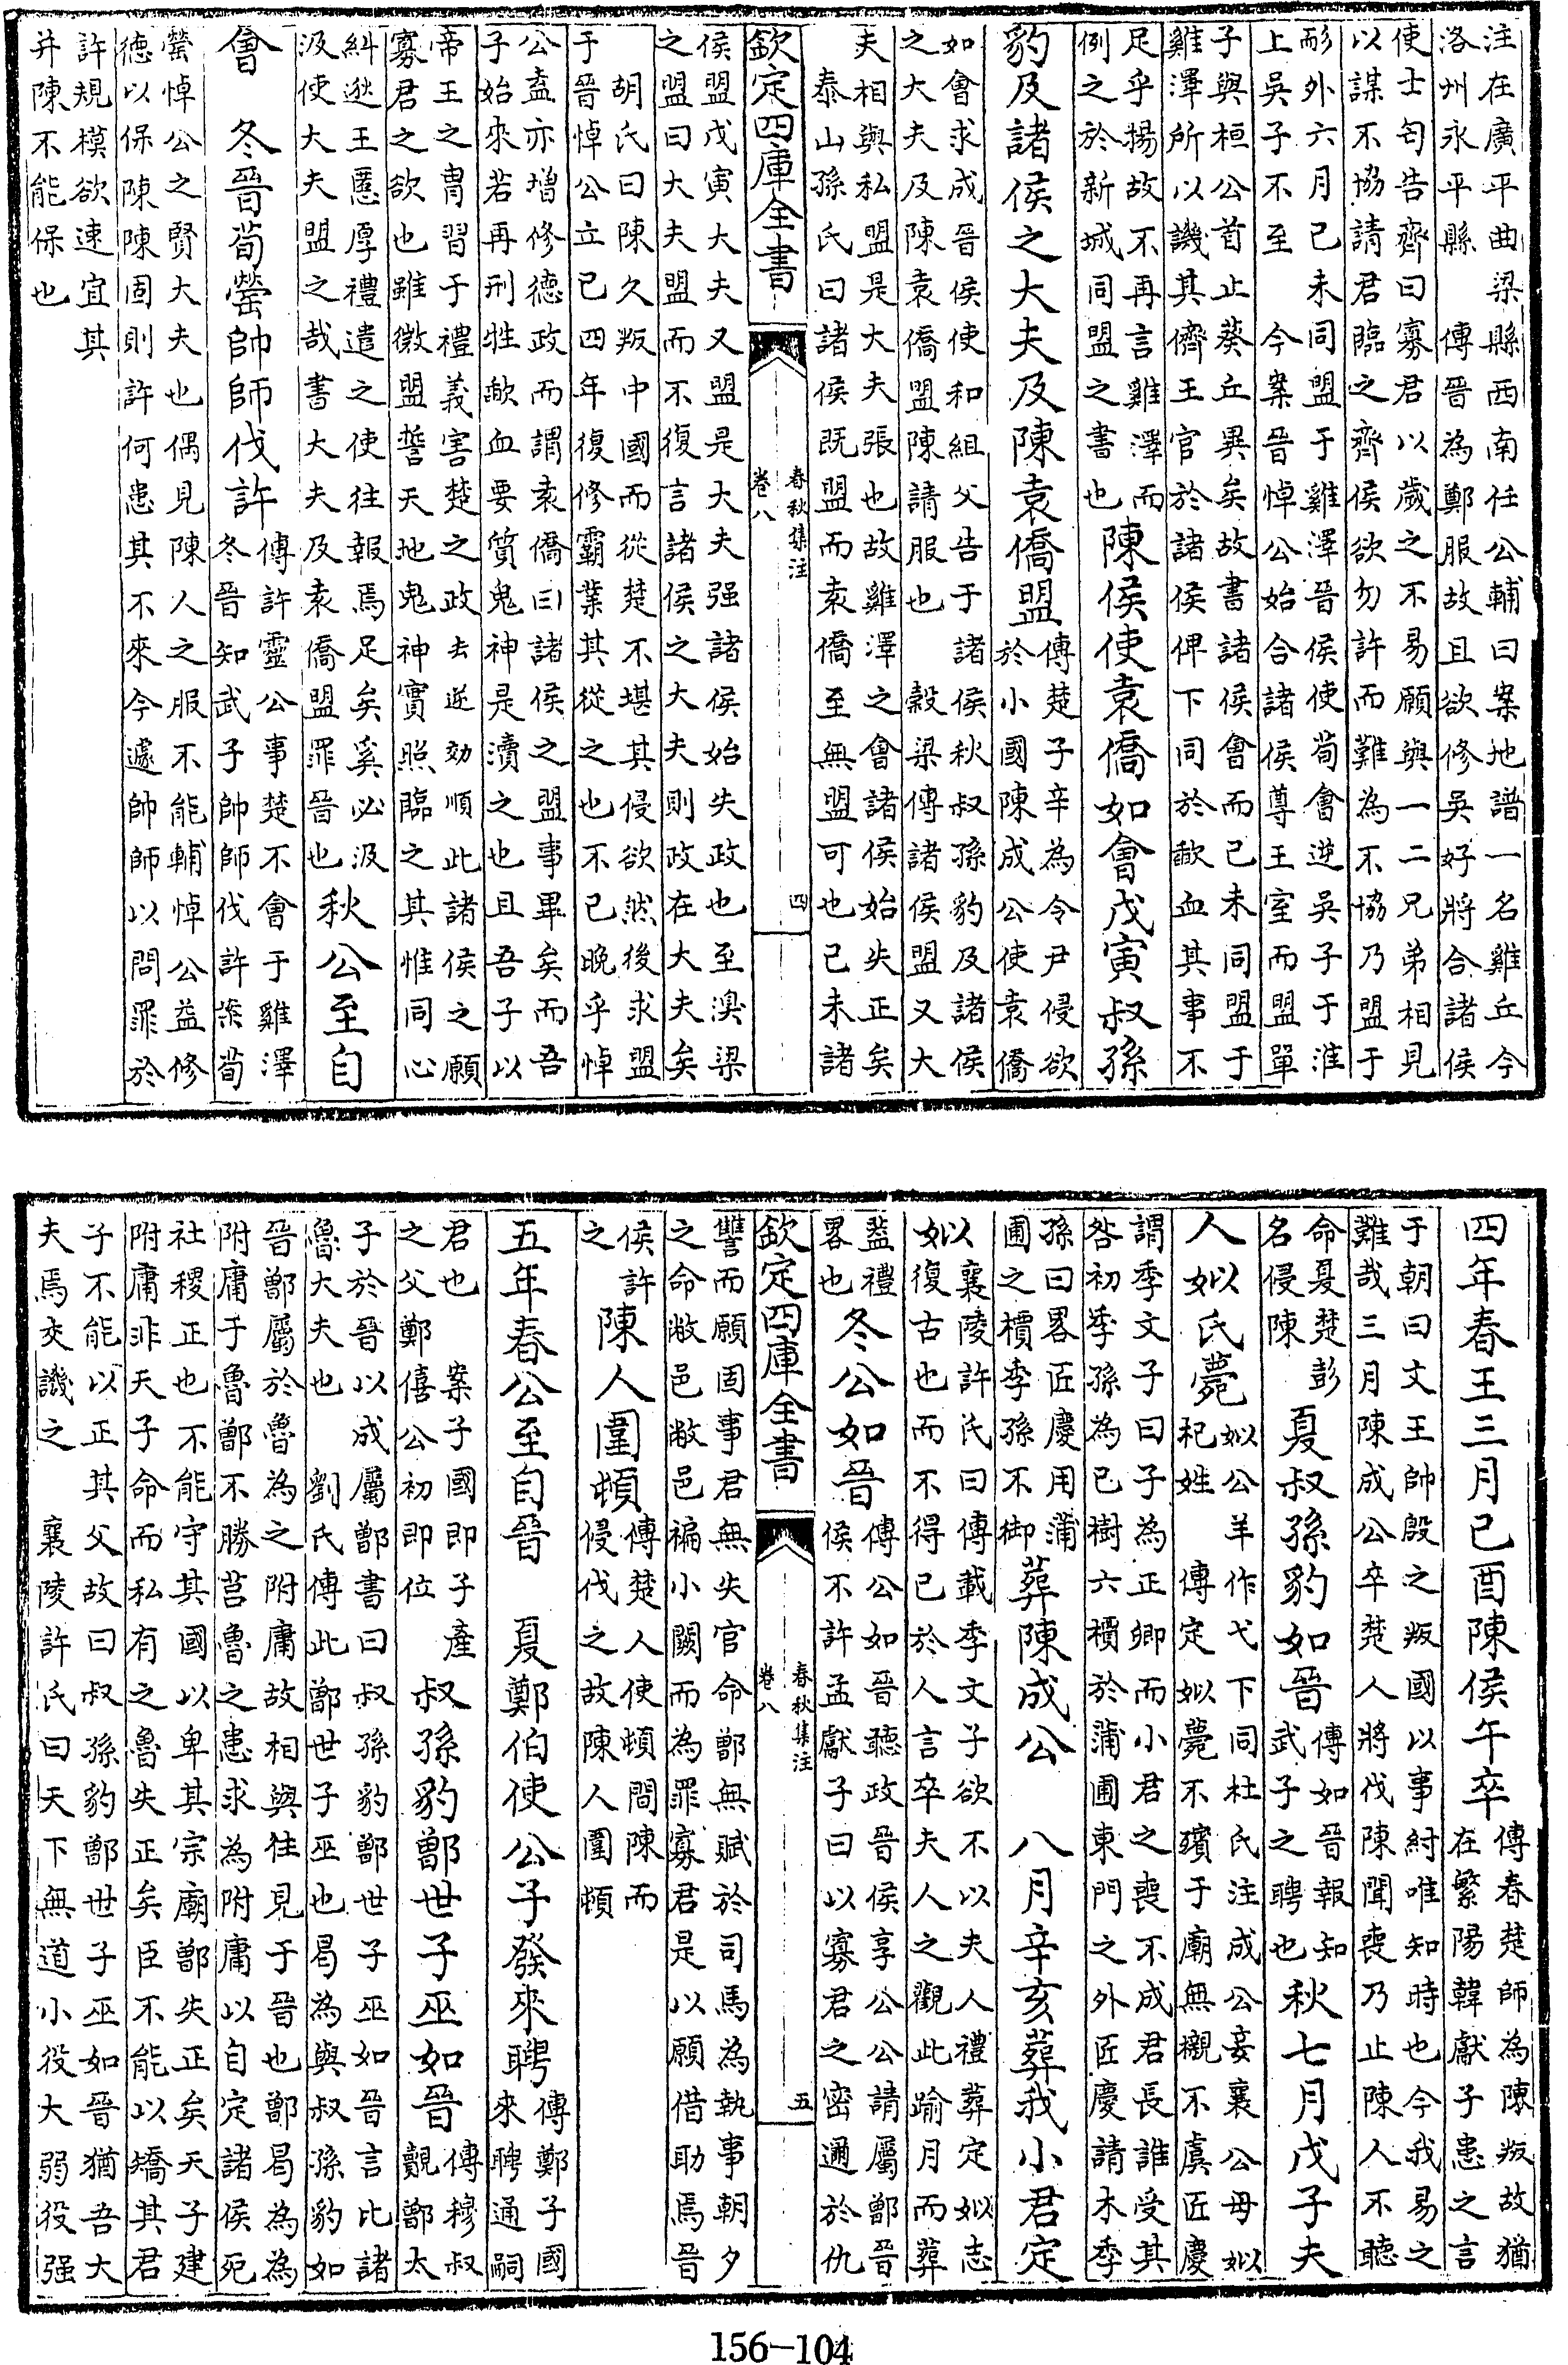 注在廣平曲梁縣西南任公輔曰案地譜一名雞丘今
洛州永平縣　傳晉為鄭服故且欲修吳好將合諸侯
使士匄告齊曰寡君以歲之不易願與一二兄弟相見
以謀不協請君臨之齊侯欲勿許而難為不協乃盟于
耏外六月己未同盟于雞澤晉侯使荀會逆吳子于淮
上吳子不至　今案晉悼公始合諸侯尊王室而盟單
子與桓公首止葵丘異矣故書諸侯會而己未同盟于
雞澤所以譏其儕王官於諸侯俾下同於歃血其事不
足乎揚故不再言雞澤而
例之於新城同盟之書也
陳侯使袁僑如會戊寅叔孫
豹及諸侯之大夫及陳袁僑盟
傳楚子辛為令尹侵欲
於小國陳成公使袁僑
如會求成晉侯使和組父告于諸侯秋叔孫豹及諸侯
之大夫及陳袁僑盟陳請服也　穀梁傳諸侯盟又大
夫相與私盟是大夫張也故雞澤之會諸侯始失正矣
泰山孫氏曰諸侯既盟而袁僑至無盟可也己未諸
欽定四庫全書
春秋集注
卷八
四
侯盟戊寅大夫又盟是大夫强諸侯始失政也至溴梁
之盟曰大夫盟而不復言諸侯之大夫則政在大夫矣
胡氏曰陳久叛中國而從楚不堪其侵欲然後求盟
于晉悼公立已四年復修霸業其從之也不已晚乎悼
公盍亦增修德政而謂袁僑曰諸侯之盟事畢矣而吾
子始來若再刑牲歃血要質鬼神是瀆之也且吾子以
帝王之胄習于禮義害楚之政去逆効順此諸侯之願
寡君之欲也雖微盟誓天地鬼神實照臨之其惟同心
糾逖王慝厚禮遣之使往報焉足矣奚必汲
汲使大夫盟之哉書大夫及袁僑盟罪晉也
秋公至自
會　冬晉荀罃帥師伐許
傳許靈公事楚不會于雞澤
冬晉知武子帥師伐許案荀
罃悼公之賢大夫也偶見陳人之服不能輔悼公益修
德以保陳陳固則許何患其不來今遽帥師以問罪於
許規模欲速宜其
并陳不能保也
四年春王三月己酉陳侯午卒
傳春楚師為陳叛故猶
在繁陽韓獻子患之言
于朝曰文王帥殷之叛國以事紂唯知時也今我易之
難哉三月陳成公卒楚人將伐陳聞喪乃止陳人不聽
命夏楚彭
名侵陳
夏叔孫豹如晉
傳如晉報知
武子之聘也
秋七月戊子夫
人姒氏薨
姒公羊作弋下同杜氏注成公妾襄公母姒
杞姓　傳定姒薨不殯于廟無櫬不虞匠慶
謂季文子曰子為正卿而小君之喪不成君長誰受其
咎初季孫為己樹六檟於蒲圃東門之外匠慶請木季
孫曰畧匠慶用蒲
圃之檟季孫不御
葬陳成公　八月辛亥葬我小君定
姒
襄陵許氏曰傳載季文子欲不以夫人禮葬定姒志
復古也而不得已於人言卒夫人之觀此踰月而葬
葢禮
畧也
冬公如晉
傳公如晉聽政晉侯享公公請屬鄫晉
侯不許孟獻子曰以寡君之密邇於仇
欽定四庫全書
春秋集注
卷八
五
讐而願固事君無失官命鄫無賦於司馬為執事朝夕
之命敝邑敝邑褊小闕而為罪寡君是以願借助焉晉
侯許
之
陳人圍頓
傳楚人使頓間陳而
侵伐之故陳人圍頓
五年春公至自晉　夏鄭伯使公子發來聘
傳鄭子國
來聘通嗣
君也　案子國即子產
之父鄭僖公初即位
叔孫豹鄫世子巫如晉
傳穆叔
覿鄫太
子於晉以成屬鄫書曰叔孫豹鄫世子巫如晉言比諸
魯大夫也　劉氏傳此鄫世子巫也曷為與叔孫豹如
晉鄫屬於魯為之附庸故相與往見于晉也鄫曷為為
附庸于魯鄫不勝莒魯之患求為附庸以自定諸侯死
社稷正也不能守其國以卑其宗廟鄫失正矣天子建
附庸非天子命而私有之魯失正矣臣不能以矯其君
子不能以正其父故曰叔孫豹鄫世子巫如晉猶吾大
夫焉交譏之　襄陵許氏曰天下無道小役大弱役强
156-104